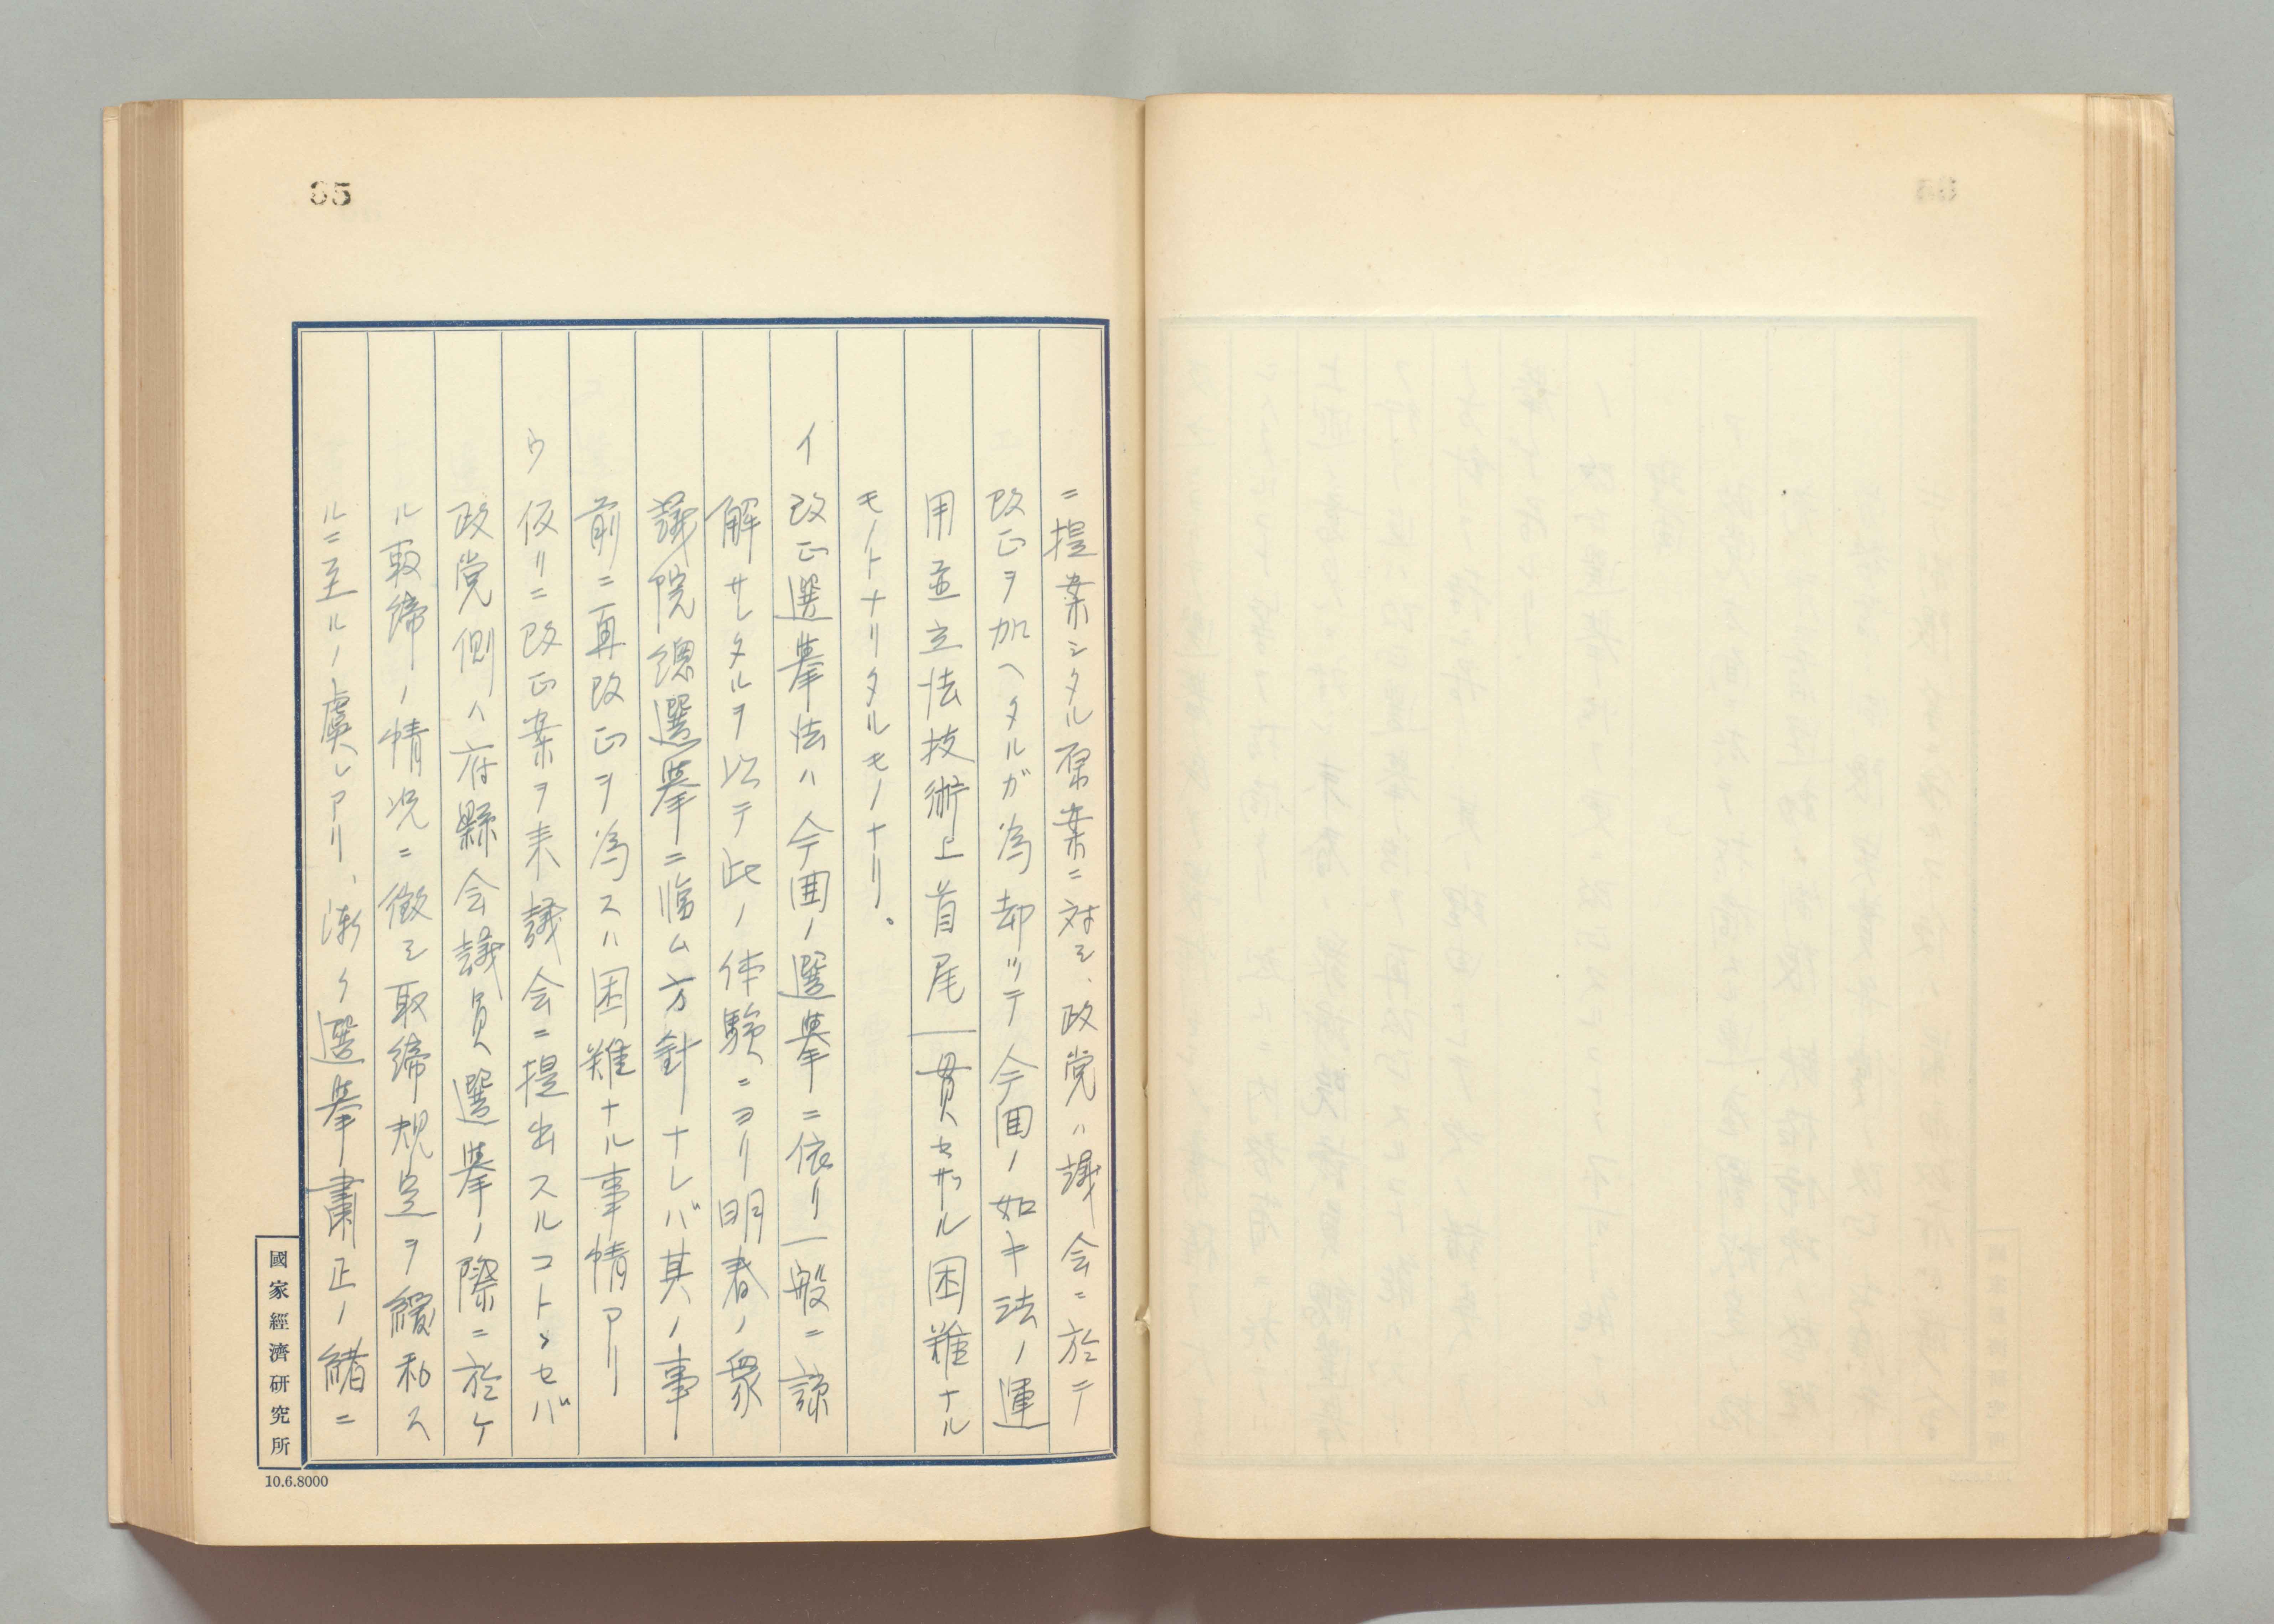 65
ニ提案シタル原案ニ対シ、政党ハ議会ニ於テ
改正ヲ加ヘタルガ為却ッテ今囬ノ如キ法ノ運
用並立法技術上首尾一貫セザル困難ナル
モノトナリタルモノナリ。
イ 改正選挙法ハ今囬ノ選挙ニ依リ一般ニ諒
解サレタルヲ以テ此ノ体験ニヨリ明春ノ衆
議院總選挙ニ臨ム方針ナレバ其ノ事
前ニ再改正ヲ為スハ困難ナル事情アリ
ウ 仮リニ改正案ヲ来議会ニ提出スルコトゝセバ
政党側ハ府縣会議員選挙ノ際ニ於ケ
ル取締ノ情況ニ徴シ取締規定ヲ緩和ス
ルニ至ルノ虞レアリ、漸ク選挙肅正ノ緒ニ
國家經濟研究所
10.6.8000